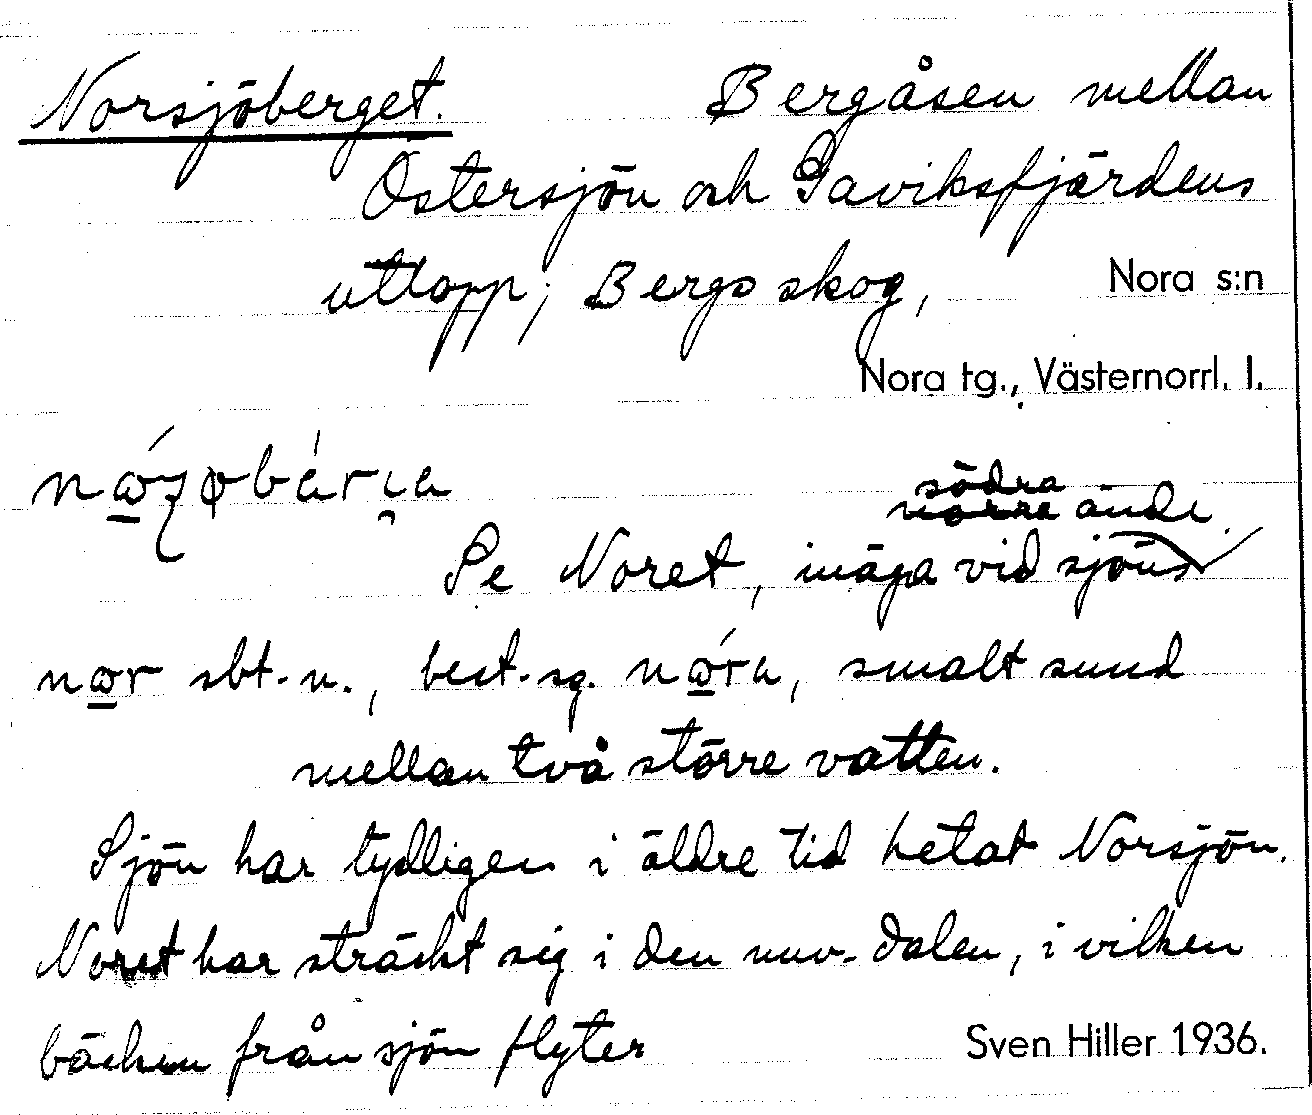 Norsjöberget. Bergåsen mellan
Östersjön och Gaviksfjärdens
utlopp; Bergs skog, Nora s:n
Nora tg., Västernorrl. l.
södra
norra ände
Se Noret, inäga vid sjöns
nɷr sbt. n., best. sg. nɷ́ra, smalt sund
mellan två större vatten.
Sjön har tydligen i äldre tid hetat Norsjön.
Noret har sträckt sig i den nuv. dalen, i vilken
bäcken från sjön flyter Sven Hiller 1936.